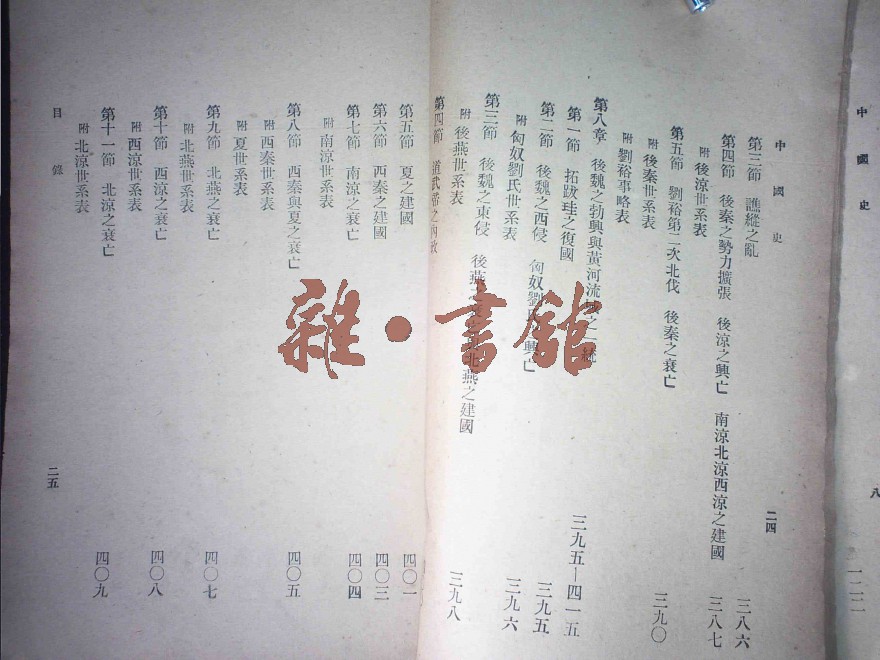 中國史
八
中國史
二四
第三節 譙縱之亂 三八六
第四節 後秦之勢力擴張 後涼之興亡 南涼北涼西涼之建國 三八七
附 後涼世系表
第五節 劉裕第二次北伐 後秦之衰亡 三九〇
附 後秦世系表
附 劉裕事略表
第八章 後魏之勃興與黃河流域之一統 三九五—四一五
第一節 拓跋珪之復國 三九五
第二節 後魏之西侵 匈奴劉氏之興亡 三九六
附 匈奴劉氏世系表
第三節 後魏之東侵 後燕之 北燕之建國 三九八
附 後燕世系表
第四節 道武帝之內政
第五節 夏之建國 四〇一
第六節 西秦之建國 四〇三
第七節 南涼之衰亡 四〇四
附 南涼世系表
第八節 西秦與夏之衰亡 四〇五
附 西秦世系表
附 夏世系表
第九節 北燕之衰亡 四〇七
附 北燕世系表
第十節 西涼之衰亡 四〇八
附 西涼世系表
第十一節 北涼之衰亡 四〇九
附 北涼世系表
目錄
二五
雜·書館